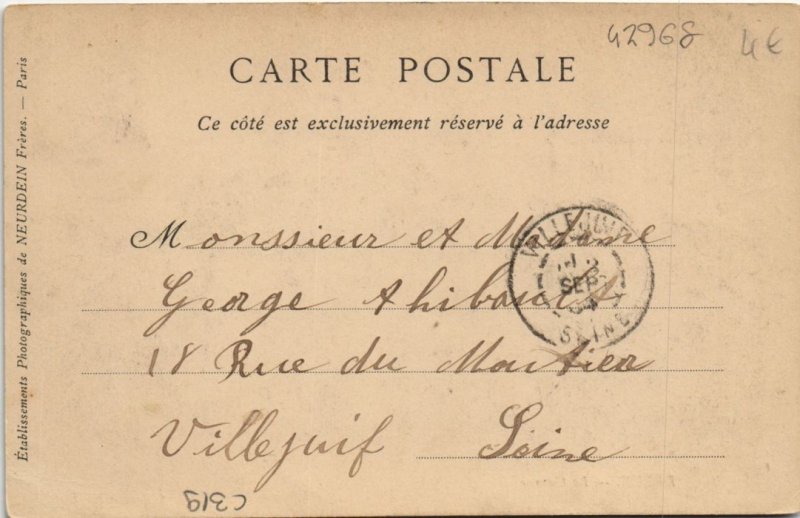 42968
4€
CARTE POSTALE
Ce côté est exclusivement réservé à l'adresse
Établissements Photographiques de NEURDEIN Frères. — Paris
Monssieur et Madame
George
18 Rue du Moutier
Villejuif Seine
VILLEJUIF
SEPT
SEINE
C319